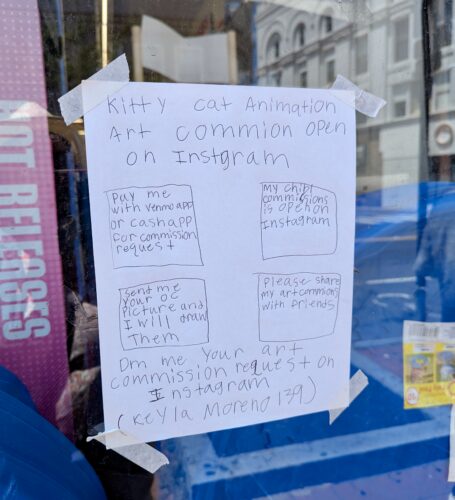 Kitty cat Animation
Art commion open
on Instgram
Pay me
with venmo app
or cashapp
for commission
request
My chibi
commissions
is open on
Instagram
Send me
your oc
picture and
I will draw
Them
Please share
my artcommions
with friends
Dm me your art
commission request on
Instagram
(Keyla Moreno 139)
HOT RELEASES